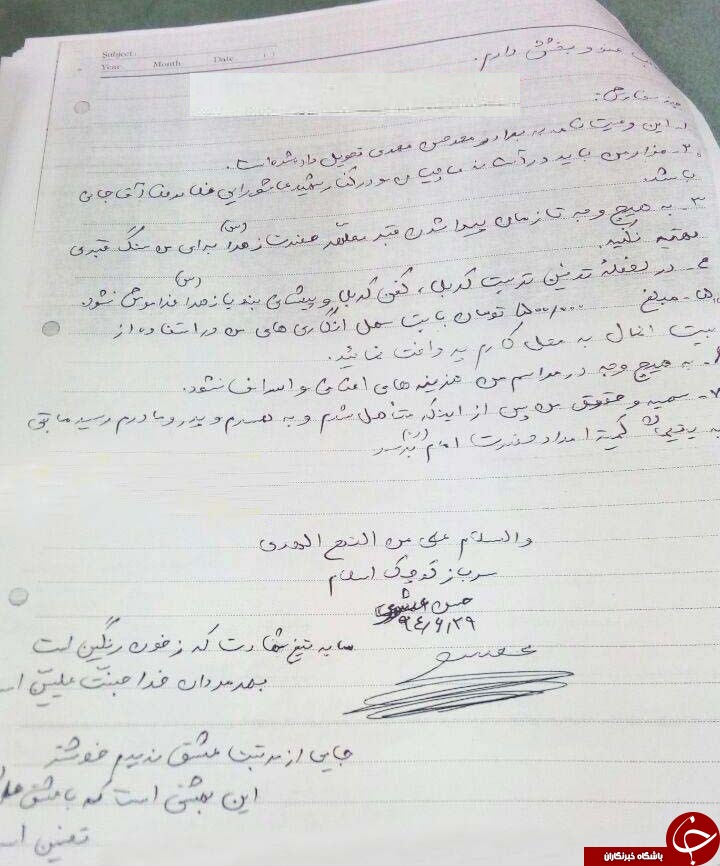 Subject:
Year. Month Date ( )
عفو و بخشش دارم.
چند سفارش:
۱- این وصیت نامه به برادرم محسن مهدی تحویل داده شده است.
۲- مزار من باید در آستانه و در کنار شهید عاشورایی غلامرضا آقاجانی
باشد.
۳- به هیچ وجه تا زمان پیدا شدن قبر مطهر حضرت زهرا (س) برای من سنگ قبری
تهیه نکنید.
۴- در لحظۀ تدفین تربت کربلا، کفن کربلا و پیشانی بند یا زهرا (س) فراموش نشود.
۵- مبلغ ۵۰۰/۰۰۰ تومان بابت سهل انگاری های من در استفاده از
بیت المال به محل کارم پرداخت نمائید.
۶- به هیچ وجه در مراسم من هزینه های اضافی و اسراف نشود.
۷- سهمیه و حقوق من پس از اینکه متأهل شدم و به همسرم و پدر و مادرم رسید مابقی
به یتیمان کمیته امداد حضرت امام (ره) برسد
والسلام علی من التبع الهدی
سرباز کوچک اسلام
حسن عشوری
۹۴/۶/۲۹
سایه تیغ شهادت که ز خون رنگین است
بهر مردان خدا جنت علیین
جایی از تربت عشق ندیدم خوشتر
این بهشتی است که با عشق
تضمین
باشگاه خبرنگاران